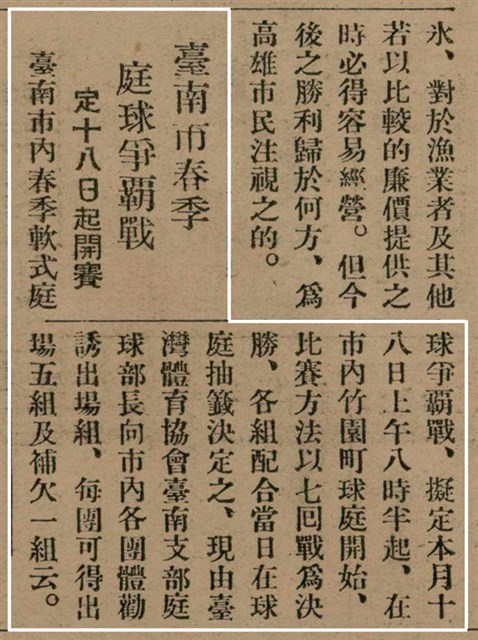 氷、對於漁業者及其他
若以比較的廉價提供之
時必得容易經營。但今
後之勝利歸於何方、爲
高雄市民注視之的。
臺南市春季
庭球爭霸戰
定十八日起開賽
臺南市內春季軟式庭
球爭霸戰、擬定本月十
八日上午八時半起、在
市內竹園町球庭開始、
比賽方法以七回戰爲決
勝、各組配合當日在球
庭抽籤決定之、現由臺
灣體育協會臺南支部庭
球部長向市內各團體勸
誘出場組、每團可得出
場五組及補欠一組云。